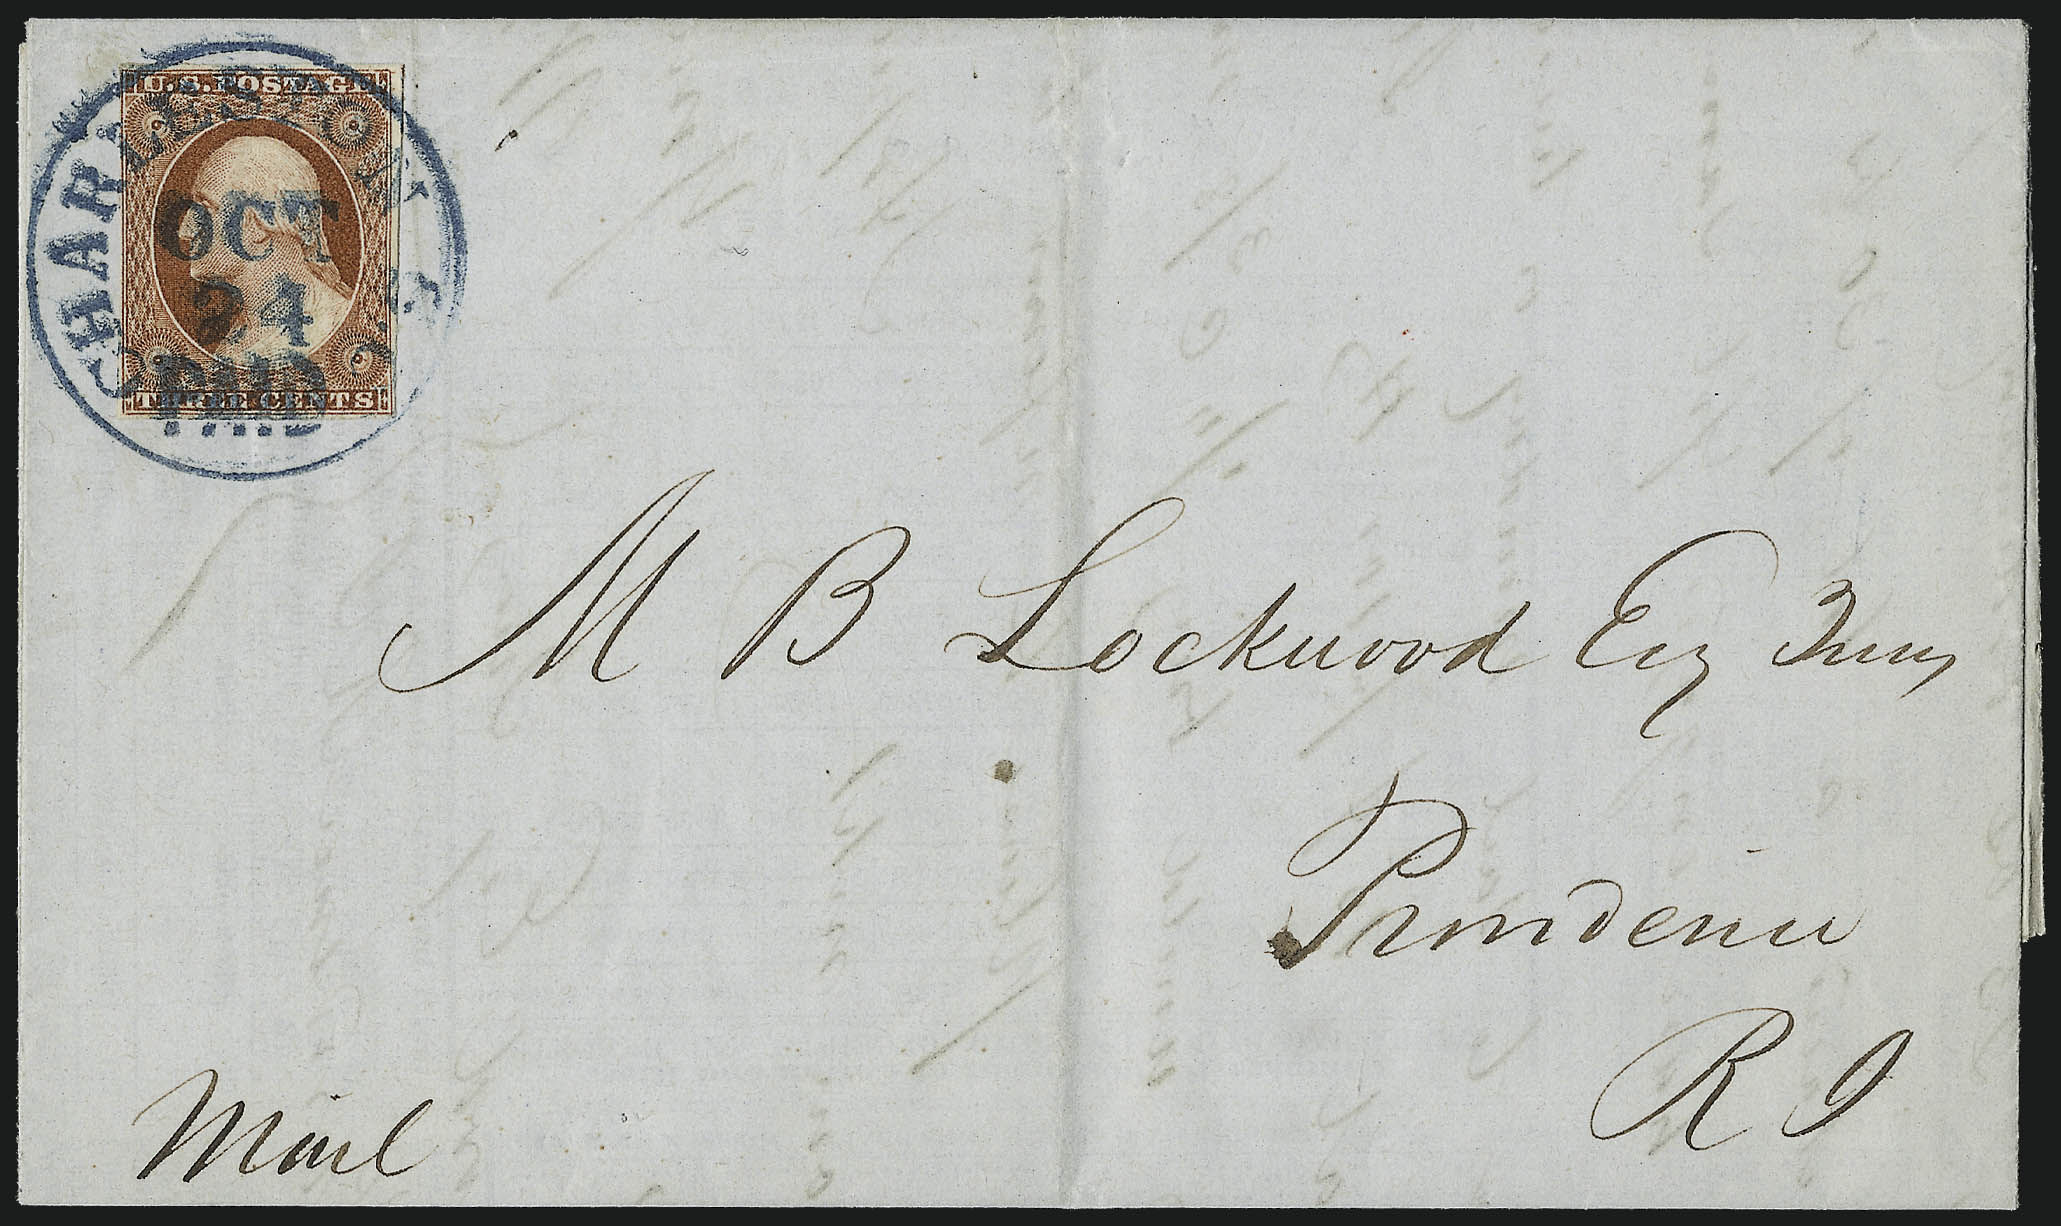 U.S. POSTAGE
CHARLESTON S.C.
OCT
24
PAID
THREE CENTS
M B Lockwood Esq Treas
Providence
R I
Mail